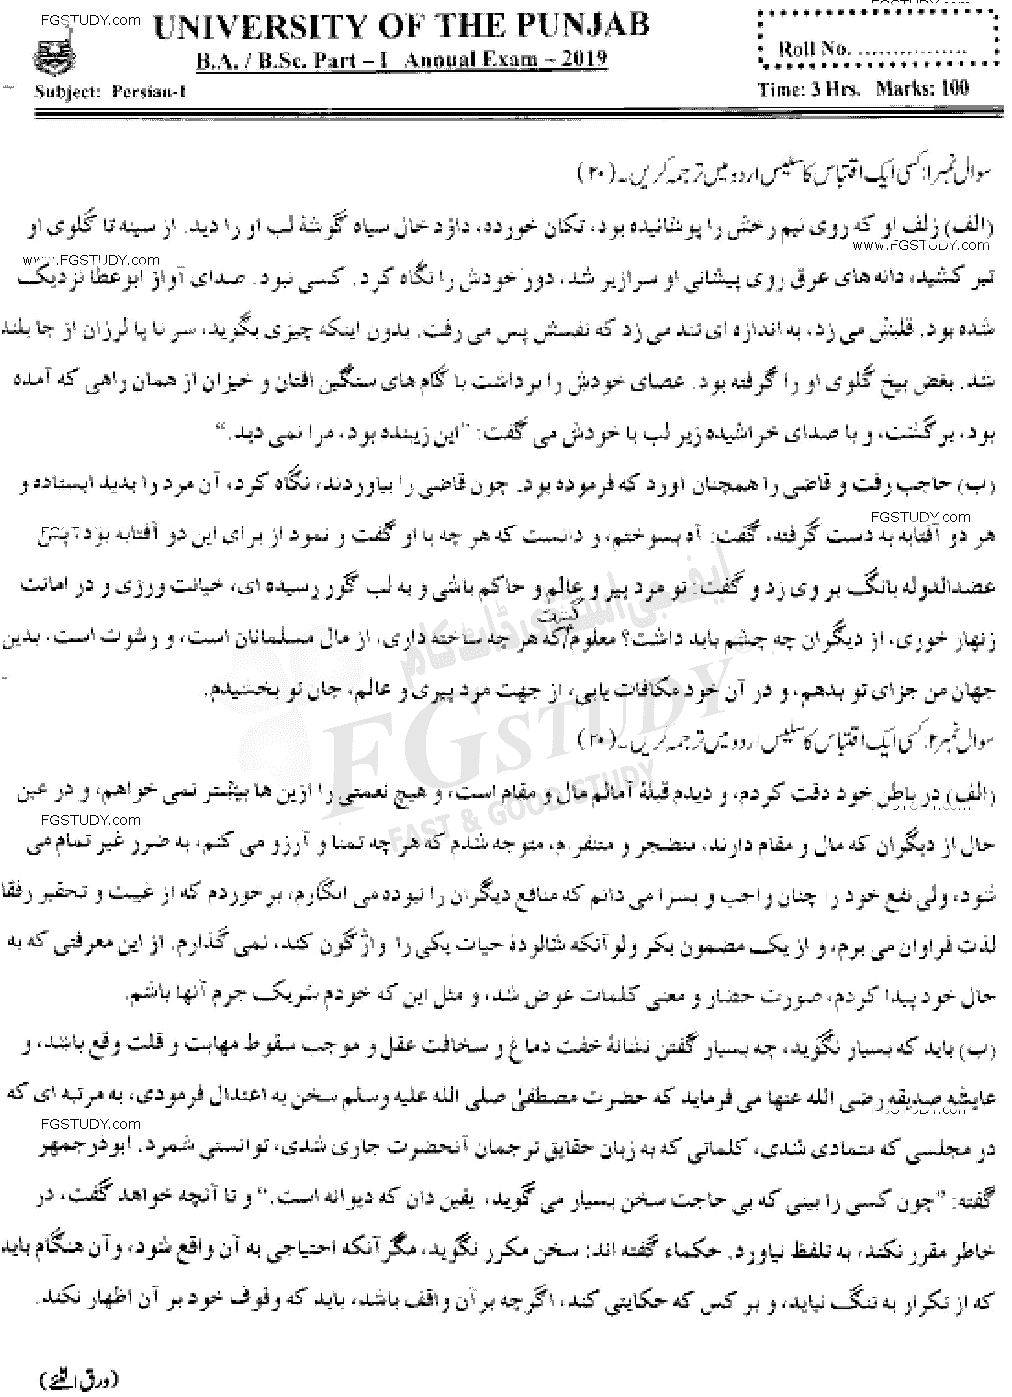 FGSTUDY.com
UNIVERSITY OF THE PUNJAB
B.A. / B.Sc. Part – I Annual Exam – 2019
Roll No. ..................
Subject: Persian-I
Time: 3 Hrs. Marks: 100
سوال نمبر ۱: کسی ایک اقتباس کا سلیس اردو میں ترجمہ کریں۔ (۲۰)
(الف) زلف او که روی نیم رخش را پوشانیده بود، تکان خورده، داؤد خال سیاه گوشهٔ لب او را دید. از سینه تا گلوی او
www.FGSTUDY.com
www.FGSTUDY.com
تیر کشید، دانه های عرق روی پیشانی او سرازیر شد، دور خودش را نگاه کرد. کسی نبود. صدای آواز ابوعطا نزدیک
شده بود. قلبش می زد، به اندازه ای تند می زد که نفسش پس می رفت. بدون اینکه چیزی بگوید، سر تا پا لرزان از جا بلند
شد. بغض بیخ گلوی او را گرفته بود. عصای خودش را برداشت با گام های سنگین افتان و خیزان از همان راهی که آمده
بود، برگشت، و با صدای خراشیده زیر لب با خودش می گفت: "این زیبنده بود، مرا نمی دید."
(ب) حاجب رفت و قاضی را همچنان آورد که فرموده بود. چون قاضی را بیاوردند، نگاه کرد، آن مرد را بدید ایستاده و
FGSTUDY.com
FGSTUDY.com
هر دو آفتابه به دست گرفته، گفت: آه بسوختم، و دانست که هر چه با او گفت و نمود از برای این دو آفتابه بود، پس
عضدالدوله بانگ بر وی زد و گفت: تو مرد پیر و عالم و حاکم باشی و به لب گور رسیده ای، خیانت ورزی و در امانت
زنهار خوری، از دیگران چه چشم باید داشت؟ معلوم گشت که هر چه ساخته داری، از مال مسلمانان است، و رشوت است، بدین
جهان من جزای تو بدهم، و در آن خود مکافات یابی، از جهت مرد پیری و عالم، جان تو بخشیدم.
ایف جی اسٹڈی ڈاٹ کام
FGSTUDY
FAST & GOOD STUDY
سوال نمبر ۲: کسی ایک اقتباس کا سلیس اردو میں ترجمہ کریں۔ (۲۰)
(الف) در باطن خود دقت کردم، و دیدم قبلهٔ آمالم مال و مقام است، و هیچ نعمتی را ازین ها بیشتر نمی خواهم، و در عین
FGSTUDY.com
FGSTUDY.com
حال از دیگران که مال و مقام دارند، منضجر و متنفرم، متوجه شدم که هر چه تمنا و آرزو می کنم، به ضرر غیر تمام می
شود، ولی نفع خود را چنان واجب و بسزا می دانم که منافع دیگران را نبوده می انگارم، برخوردم که از غیبت و تحقیر رفقا
لذت فراوان می برم، و از یک مضمون بکر ولو آنکه شالودهٔ حیات یکی را واژگون کند، نمی گذارم. از این معرفتی که به
حال خود پیدا کردم، صورت حضار و معنی کلمات عوض شد، و مثل این که خودم شریک جرم آنها باشم.
(ب) باید که بسیار نگوید، چه بسیار گفتن نشانهٔ خفت دماغ و سخافت عقل و موجب سقوط مهابت و قلت وقع باشد، و
عایشه صدیقه رضی الله عنها می فرماید که حضرت مصطفیٰ صلی الله علیه وسلم سخن به اعتدال فرمودی، به مرتبه ای که
FGSTUDY.com
FGSTUDY.com
در مجلسی که متمادی شدی، کلماتی که به زبان حقایق ترجمان آنحضرت جاری شدی، توانستی شمرد. ابوذرجمهر
گفته: "چون کسی را بینی که بی حاجت سخن بسیار می گوید، یقین دان که دیوانه است." و تا آنچه خواهد گفت، در
خاطر مقرر نکند، به تلفظ نیاورد. حکماء گفته اند: سخن مکرر نگوید، مگر آنکه احتیاجی به آن واقع شود، و آن هنگام باید
که از تکرار به تنگ نیاید، و بر کس که حکایتی کند، اگرچه بر آن واقف باشد، باید که وقوف خود بر آن اظهار نکند.
(ورق الٹیے)